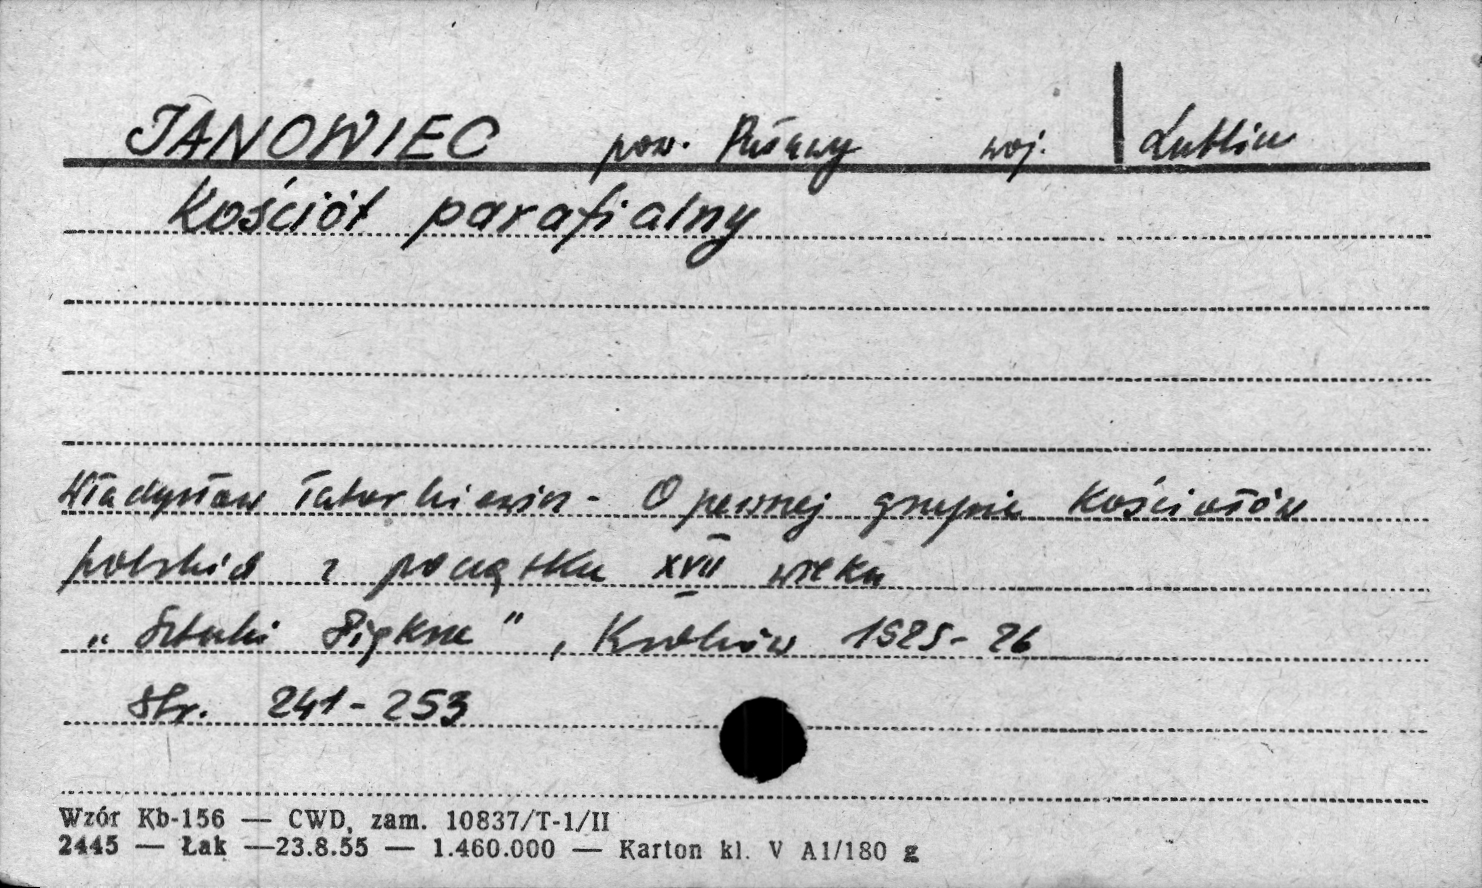 JANOWIEC pow. Puławy woj. Lublin
Kościół parafialny
Władysław Tatarkiewicz - O pewnej grupie kościołów
polskich z początku XVII wieku
„Sztuki Piękne", Kraków 1925-26
str. 241-253
Wzór Kb-156 — CWD, zam. 10837/T-1/II
2445 — Łak —23.8.55 — 1.460.000 — Karton kl. V A1/180 g